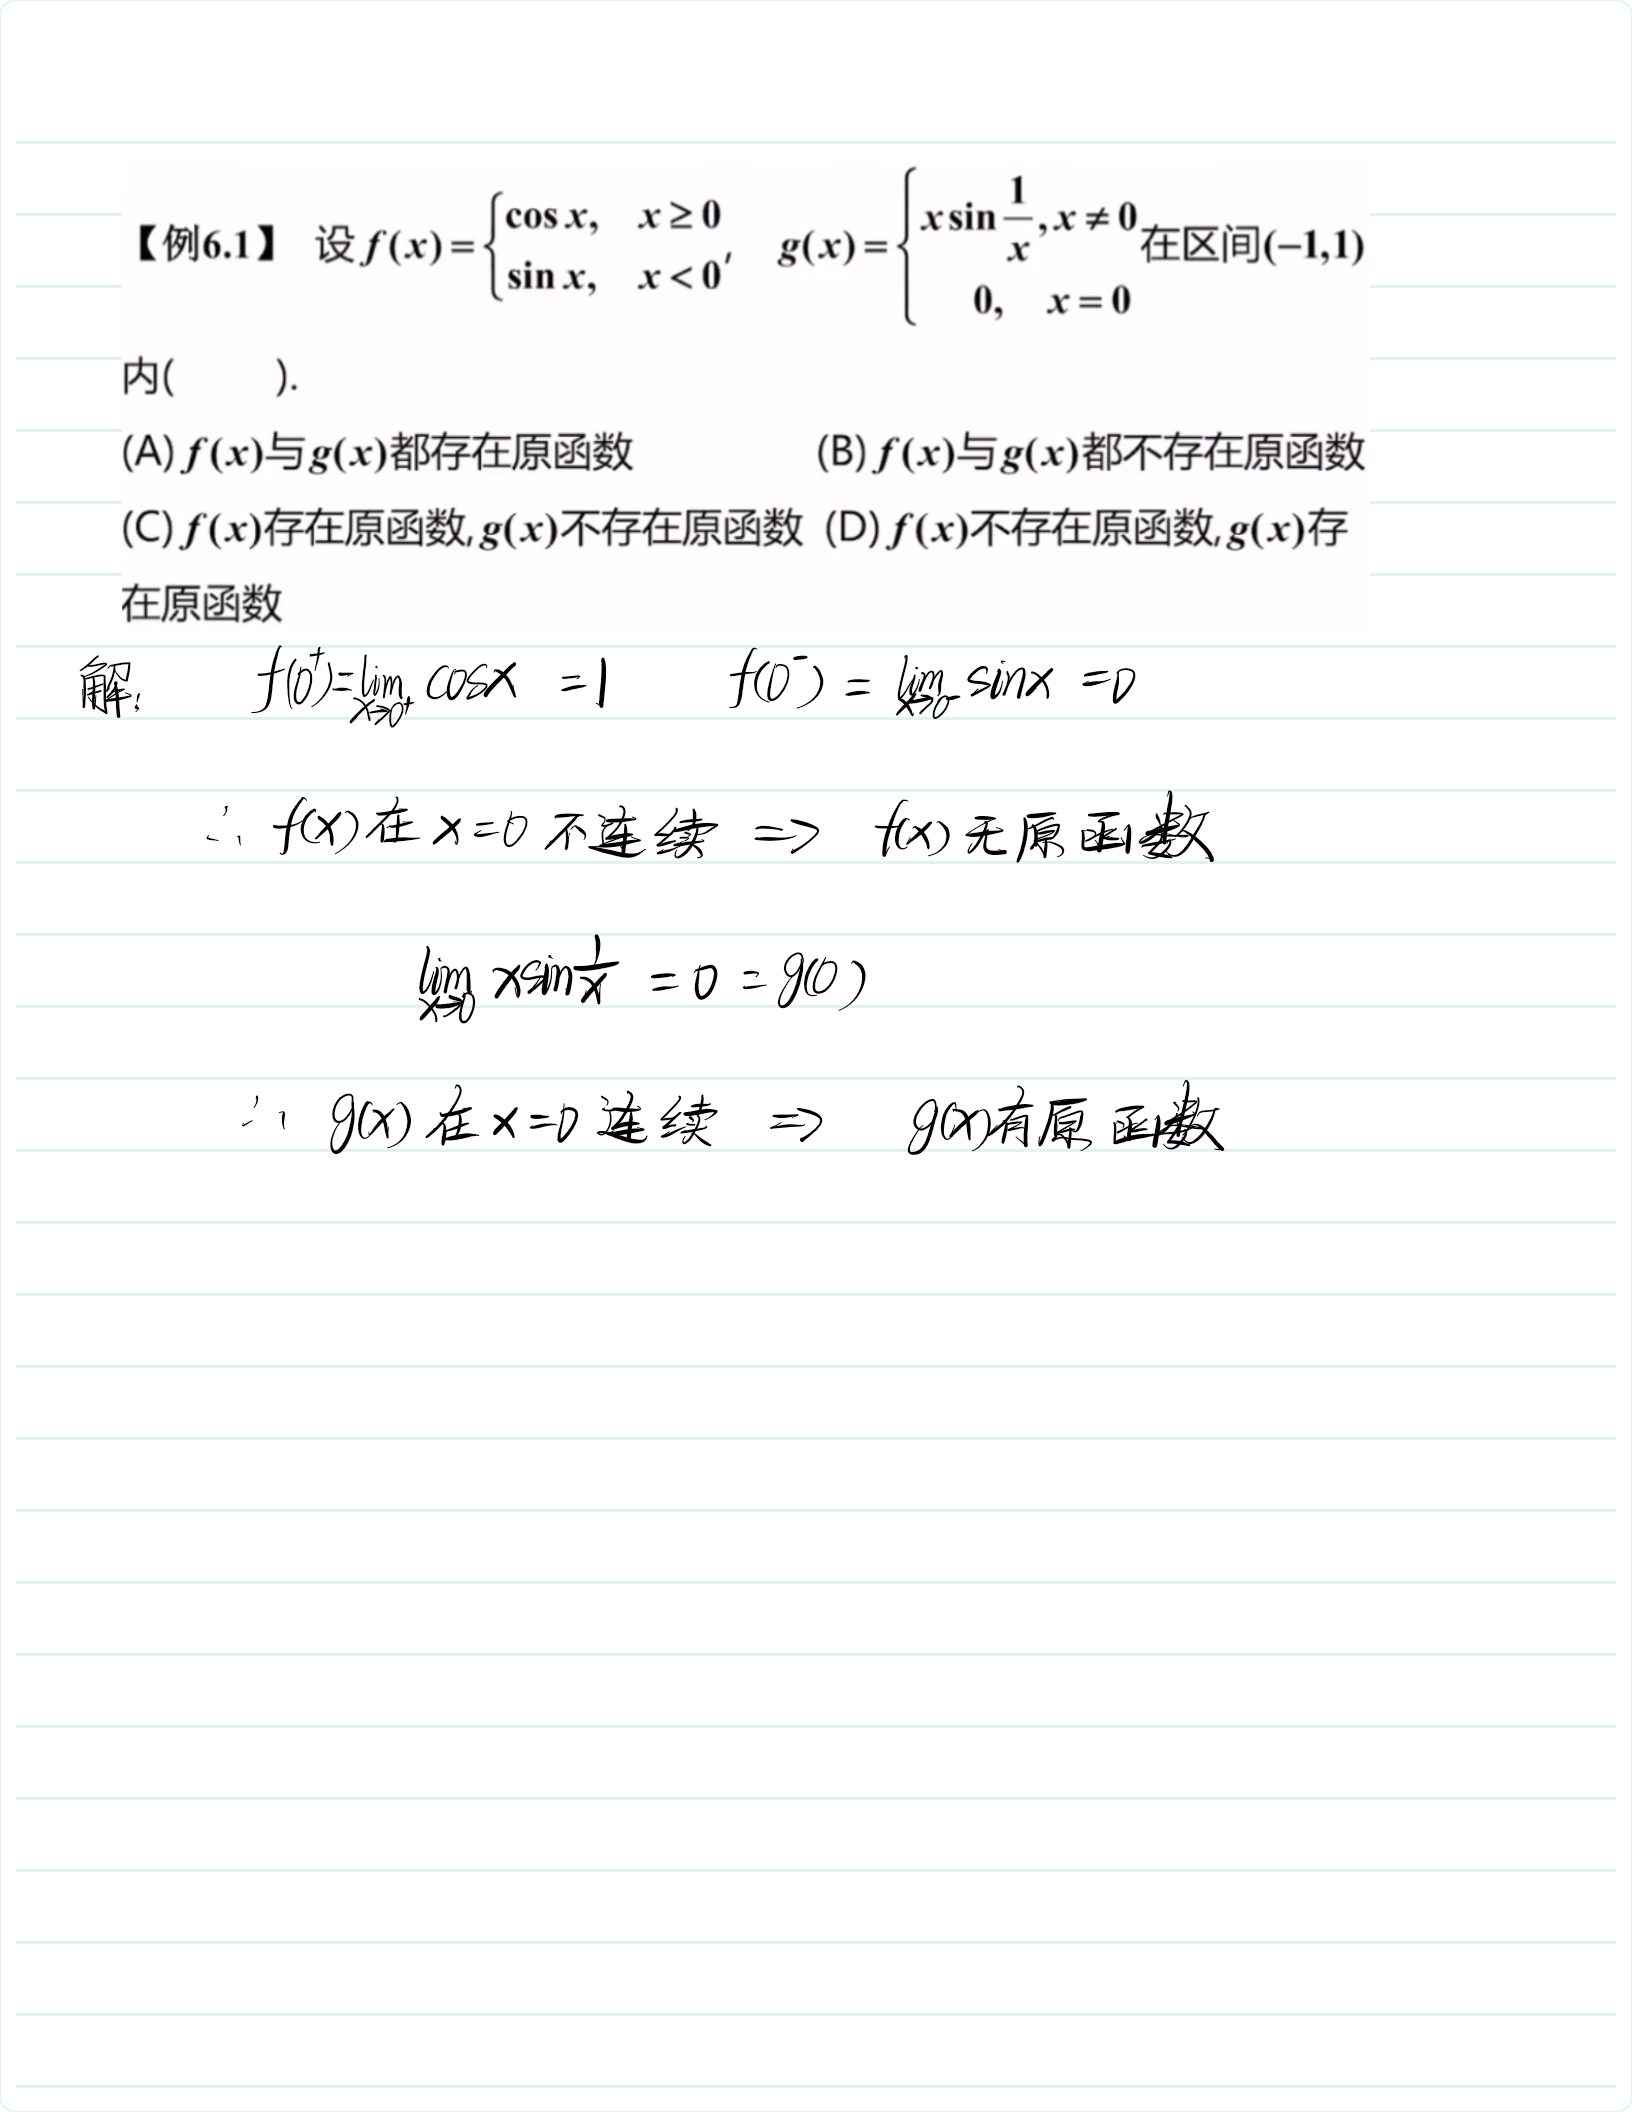 【例6.1】 设 f(x) = { cos x, x ≥ 0 ; sin x, x < 0 ′ g(x) = { x sin 1/x, x ≠ 0 ; 0, x = 0 在区间(−1,1)
内( ).
(A) f(x)与g(x)都存在原函数 (B) f(x)与g(x)都不存在原函数
(C) f(x)存在原函数, g(x)不存在原函数 (D) f(x)不存在原函数, g(x)存
在原函数
解: f(0⁺) = lim x→0⁺ cosx = 1 f(0⁻) = lim x→0⁻ sinx = 0
∴ f(x) 在 x=0 不连续 ⇒ f(x) 无原函数
lim x→0 xsin 1/x = 0 = g(0)
∴ g(x) 在 x=0 连续 ⇒ g(x)有原函数